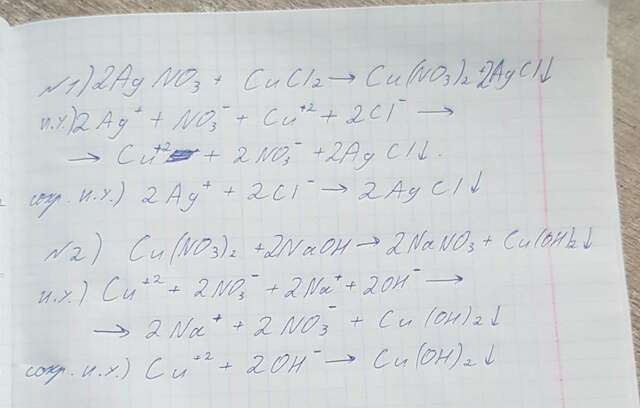 N1) 2AgNO₃ + CuCl₂ → Cu(NO₃)₂ 2AgCl↓
и.у.) 2Ag⁺ + NO₃⁻ + Cu⁺² + 2Cl⁻ →
→ Cu⁺² + 2NO₃⁻ + 2AgCl↓.
сокр. и.у.) 2Ag⁺ + 2Cl⁻ → 2AgCl↓
N2) Cu(NO₃)₂ + 2NaOH → 2NaNO₃ + Cu(OH)₂↓
и.у.) Cu⁺² + 2NO₃⁻ + 2Na⁺ + 2OH⁻ →
→ 2Na⁺ + 2NO₃⁻ + Cu(OH)₂↓
сокр. и.у.) Cu⁺² + 2OH⁻ → Cu(OH)₂↓